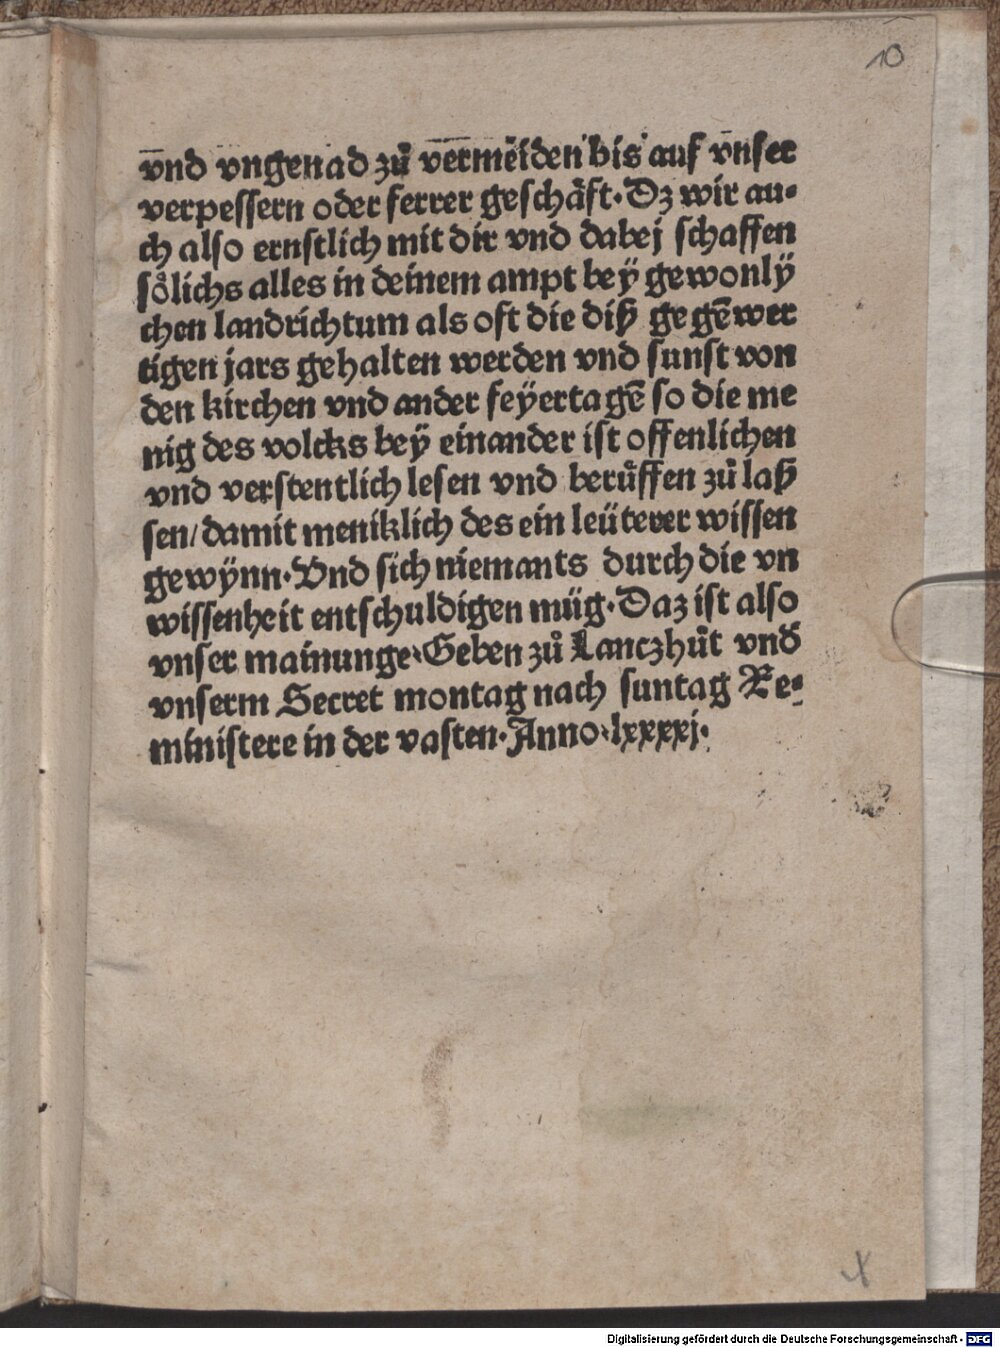 10
vnd vngenad zů vermeiden bis auf vnser
verpessern oder ferrer geschäft· Dz wir au⸗
ch also ernstlich mit dir vnd dabej schaffen
sölichs alles in deinem ampt beÿ gewonlÿ
chen landrichtum als oft die diß gegēwer
tigen jars gehalten werden vnd sunst von
den kirchen vnd ander feÿertagē so die me
nig des volcks beÿ einander ist offenlichen
vnd verstentlich lesen vnd berůffen zů laß
sen/ damit meniklich des ein leüterer wissen
gewÿnn· Vnd sich niemants durch die vn
wissenheit entschuldigen müg· Daz ist also
vnser mainunge· Geben zů Lanczhůt vnd̄
vnserm Secret montag nach suntag Re⸗
ministere in der vasten· Anno· lxxxxj·
X
Digitalisierung gefördert durch die Deutsche Forschungsgemeinschaft - DFG